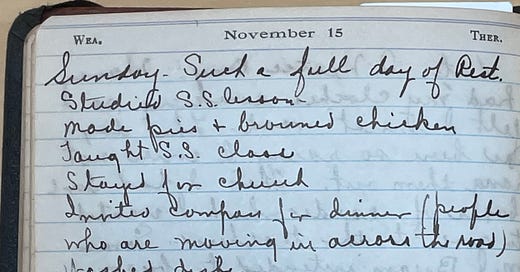 WEA. November 15 THER.
Sunday - Such a full day of Rest.
Studied S.S. lesson -
made pies + browned chicken
Taught S.S. class
Stayed for church
Invited company for dinner (people
who are moving in across the road)
Washed dishes